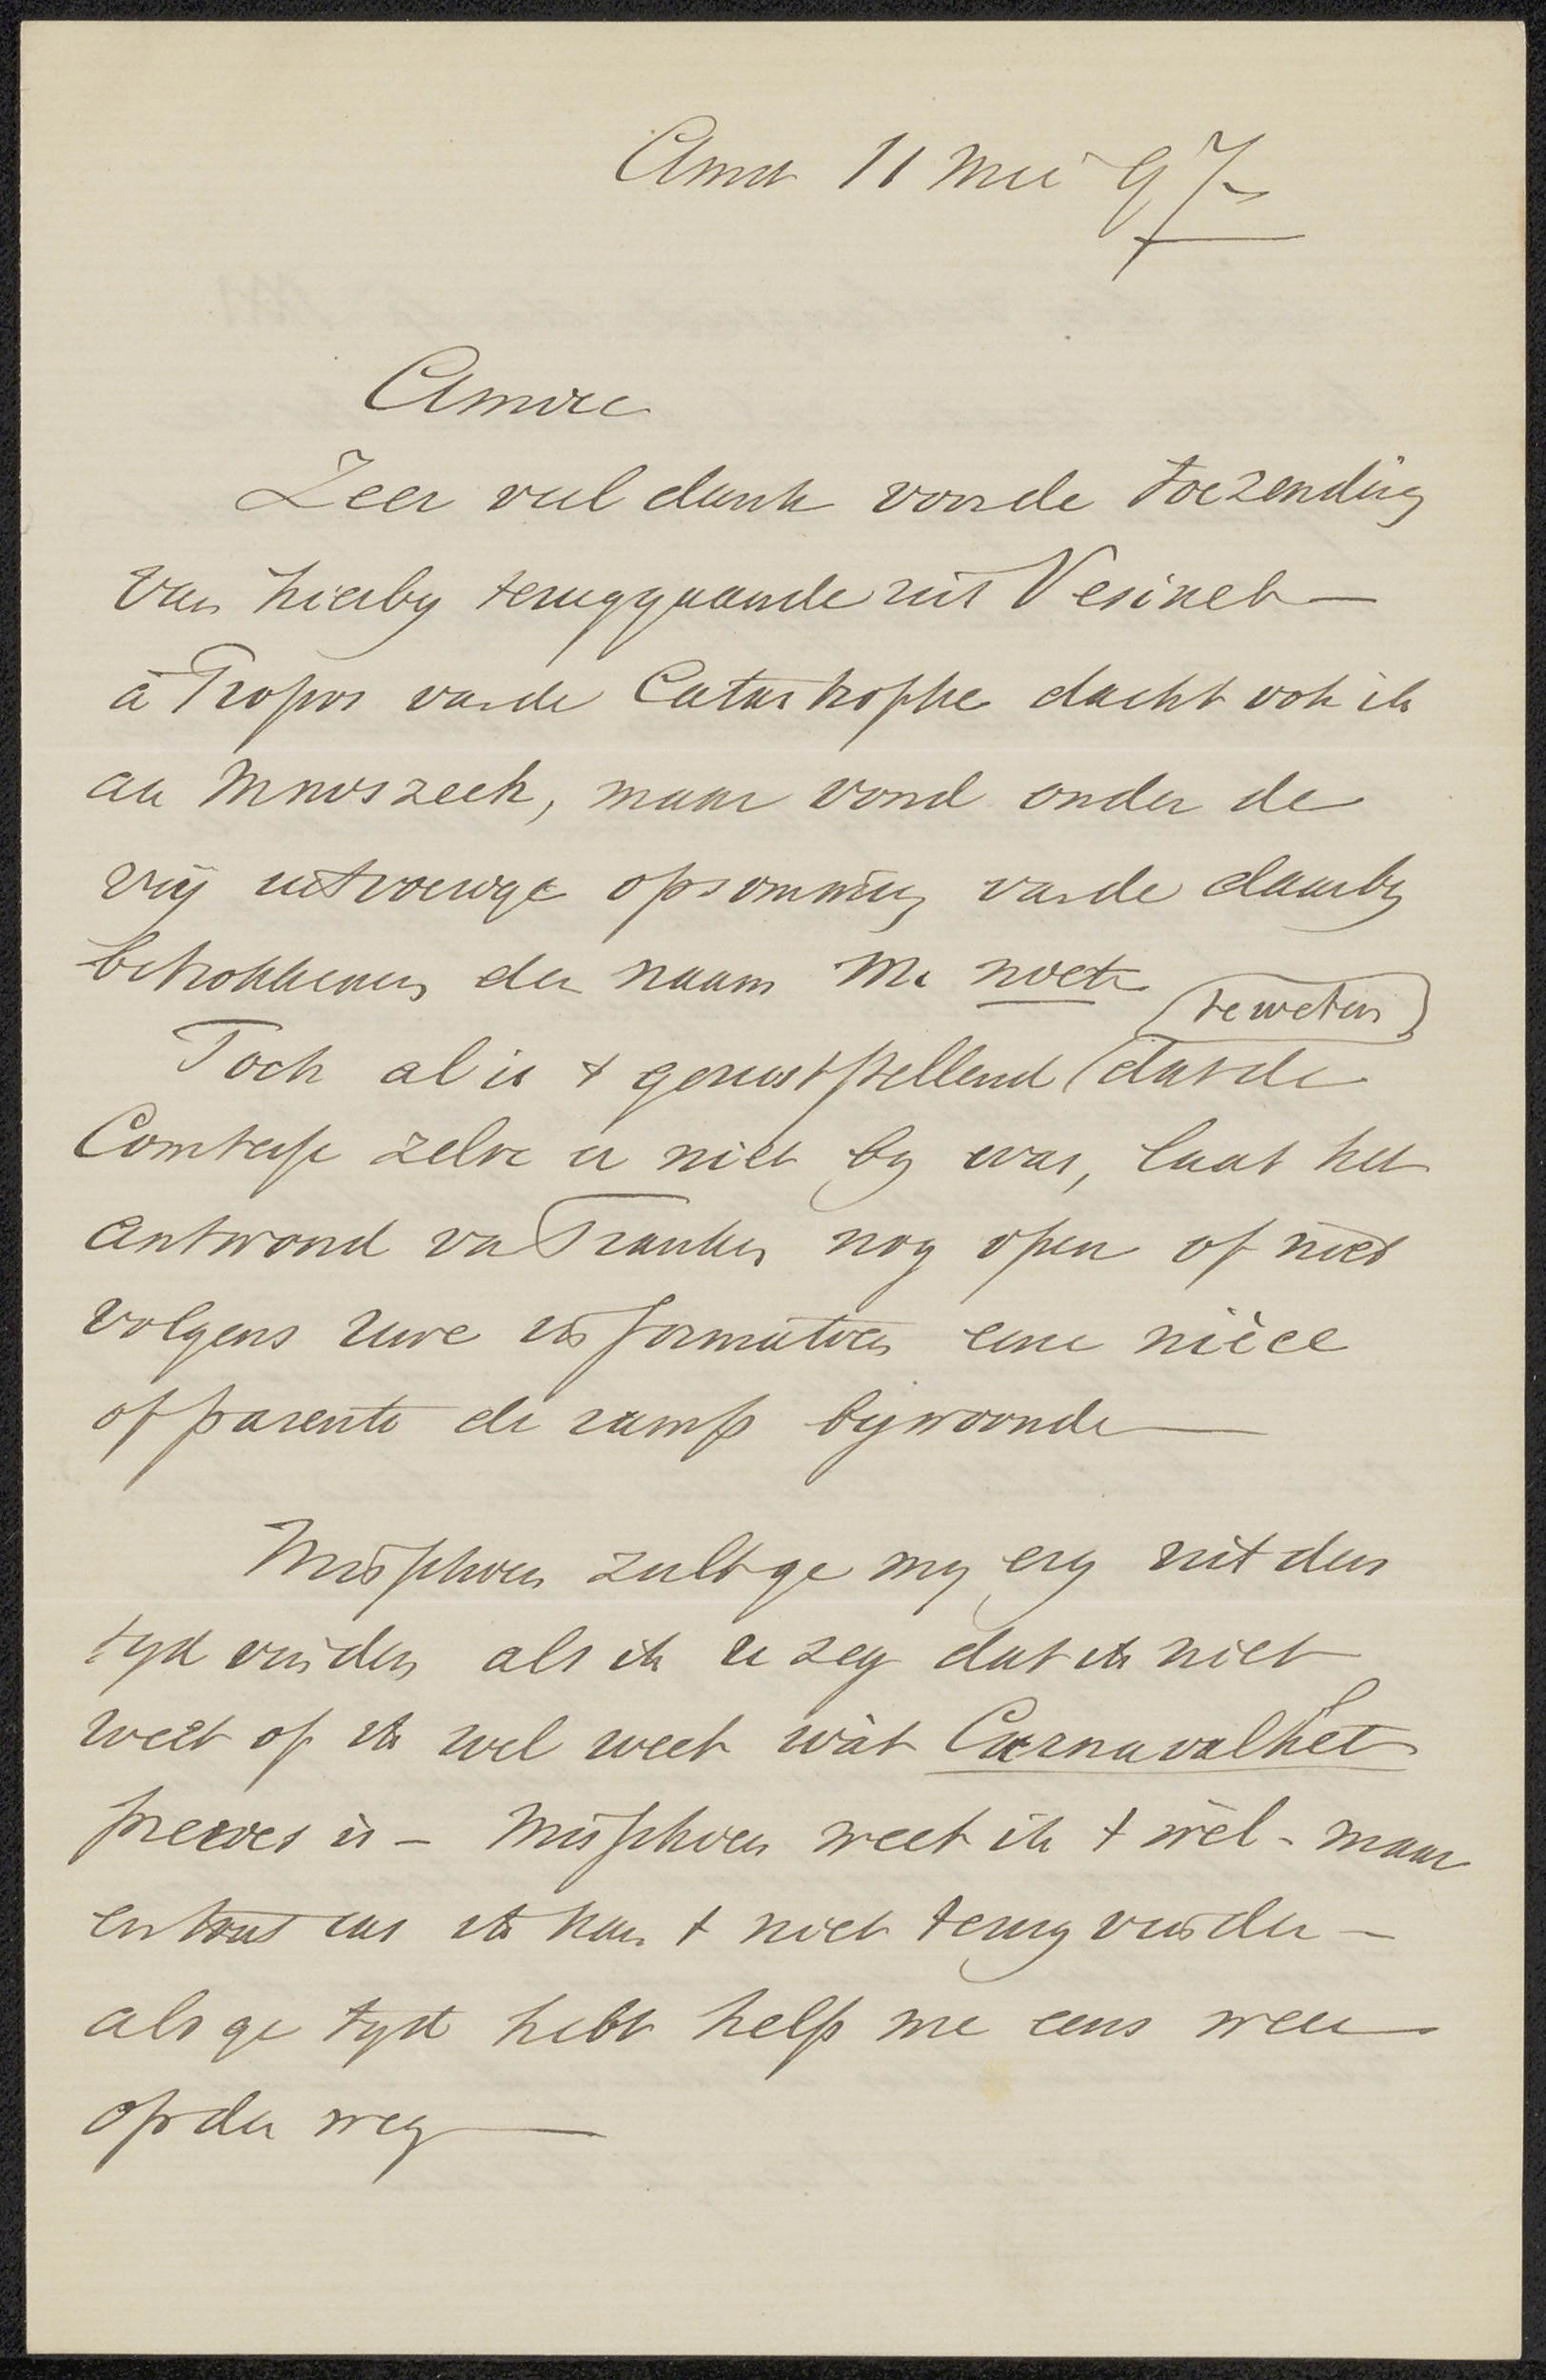 Amst 11 Mei 97
Amice
Zeer veel dank voor de toezending
van hierby teruggaande uit Vesinet —
à Propos van de Catastrophe dacht ook ik
aan Mniszech, maar vond onder de
vrij uitvoerige opsomming van de daarby
betrokkenen den naam M. niet
te weten
Toch al is 't geruststellend dat de
Comtesse zelve er niet by was, laat het
antwoord van Franken nog open of niet
volgens uwe informatien eene nièce
of parente de ramp bijwoonde —
Misschien zult ge my erg uit den
tyd vinden als ik u zeg dat ik niet
weet of ik wel weet wàt Carnavalhet
precies is – Misschien weet ik 't wèl – maar
en tout cas ik kan 't niet terug vinden –
als ge tyd hebt help me eens weer
op den weg —